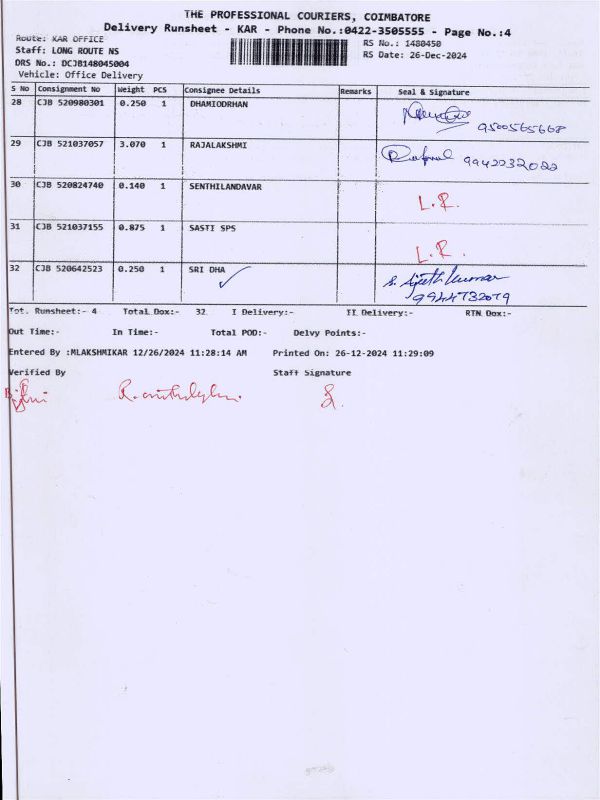 THE PROFESSIONAL COURIERS, COIMBATORE
Delivery Runsheet - KAR - Phone No.:0422-3505555 - Page No.:4
Route: KAR OFFICE RS No.: 1480450
Staff: LONG ROUTE NS RS Date: 26-Dec-2024
DRS No.: DCJB148045004
Vehicle: Office Delivery
S No Consignment No Weight PCS Consignee Details Remarks Seal & Signature
28 CJB 520980301 0.250 1 DHAMIODRHAN
9500565668
29 CJB 521037057 3.070 1 RAJALAKSHMI
9942232022
30 CJB 520824740 0.140 1 SENTHILANDAVAR
L.R.
31 CJB 521037155 0.875 1 SASTI SPS
L.R.
32 CJB 520642523 0.250 1 SRI DHA
S. Ajeeth kumar
9944732079
Tot. Runsheet:- 4 Total Dox:- 32 I Delivery:- II Delivery:- RTN Dox:-
Out Time:- In Time:- Total POD:- Delvy Points:-
Entered By :MLAKSHMIKAR 12/26/2024 11:28:14 AM Printed On: 26-12-2024 11:29:09
Verified By Staff Signature